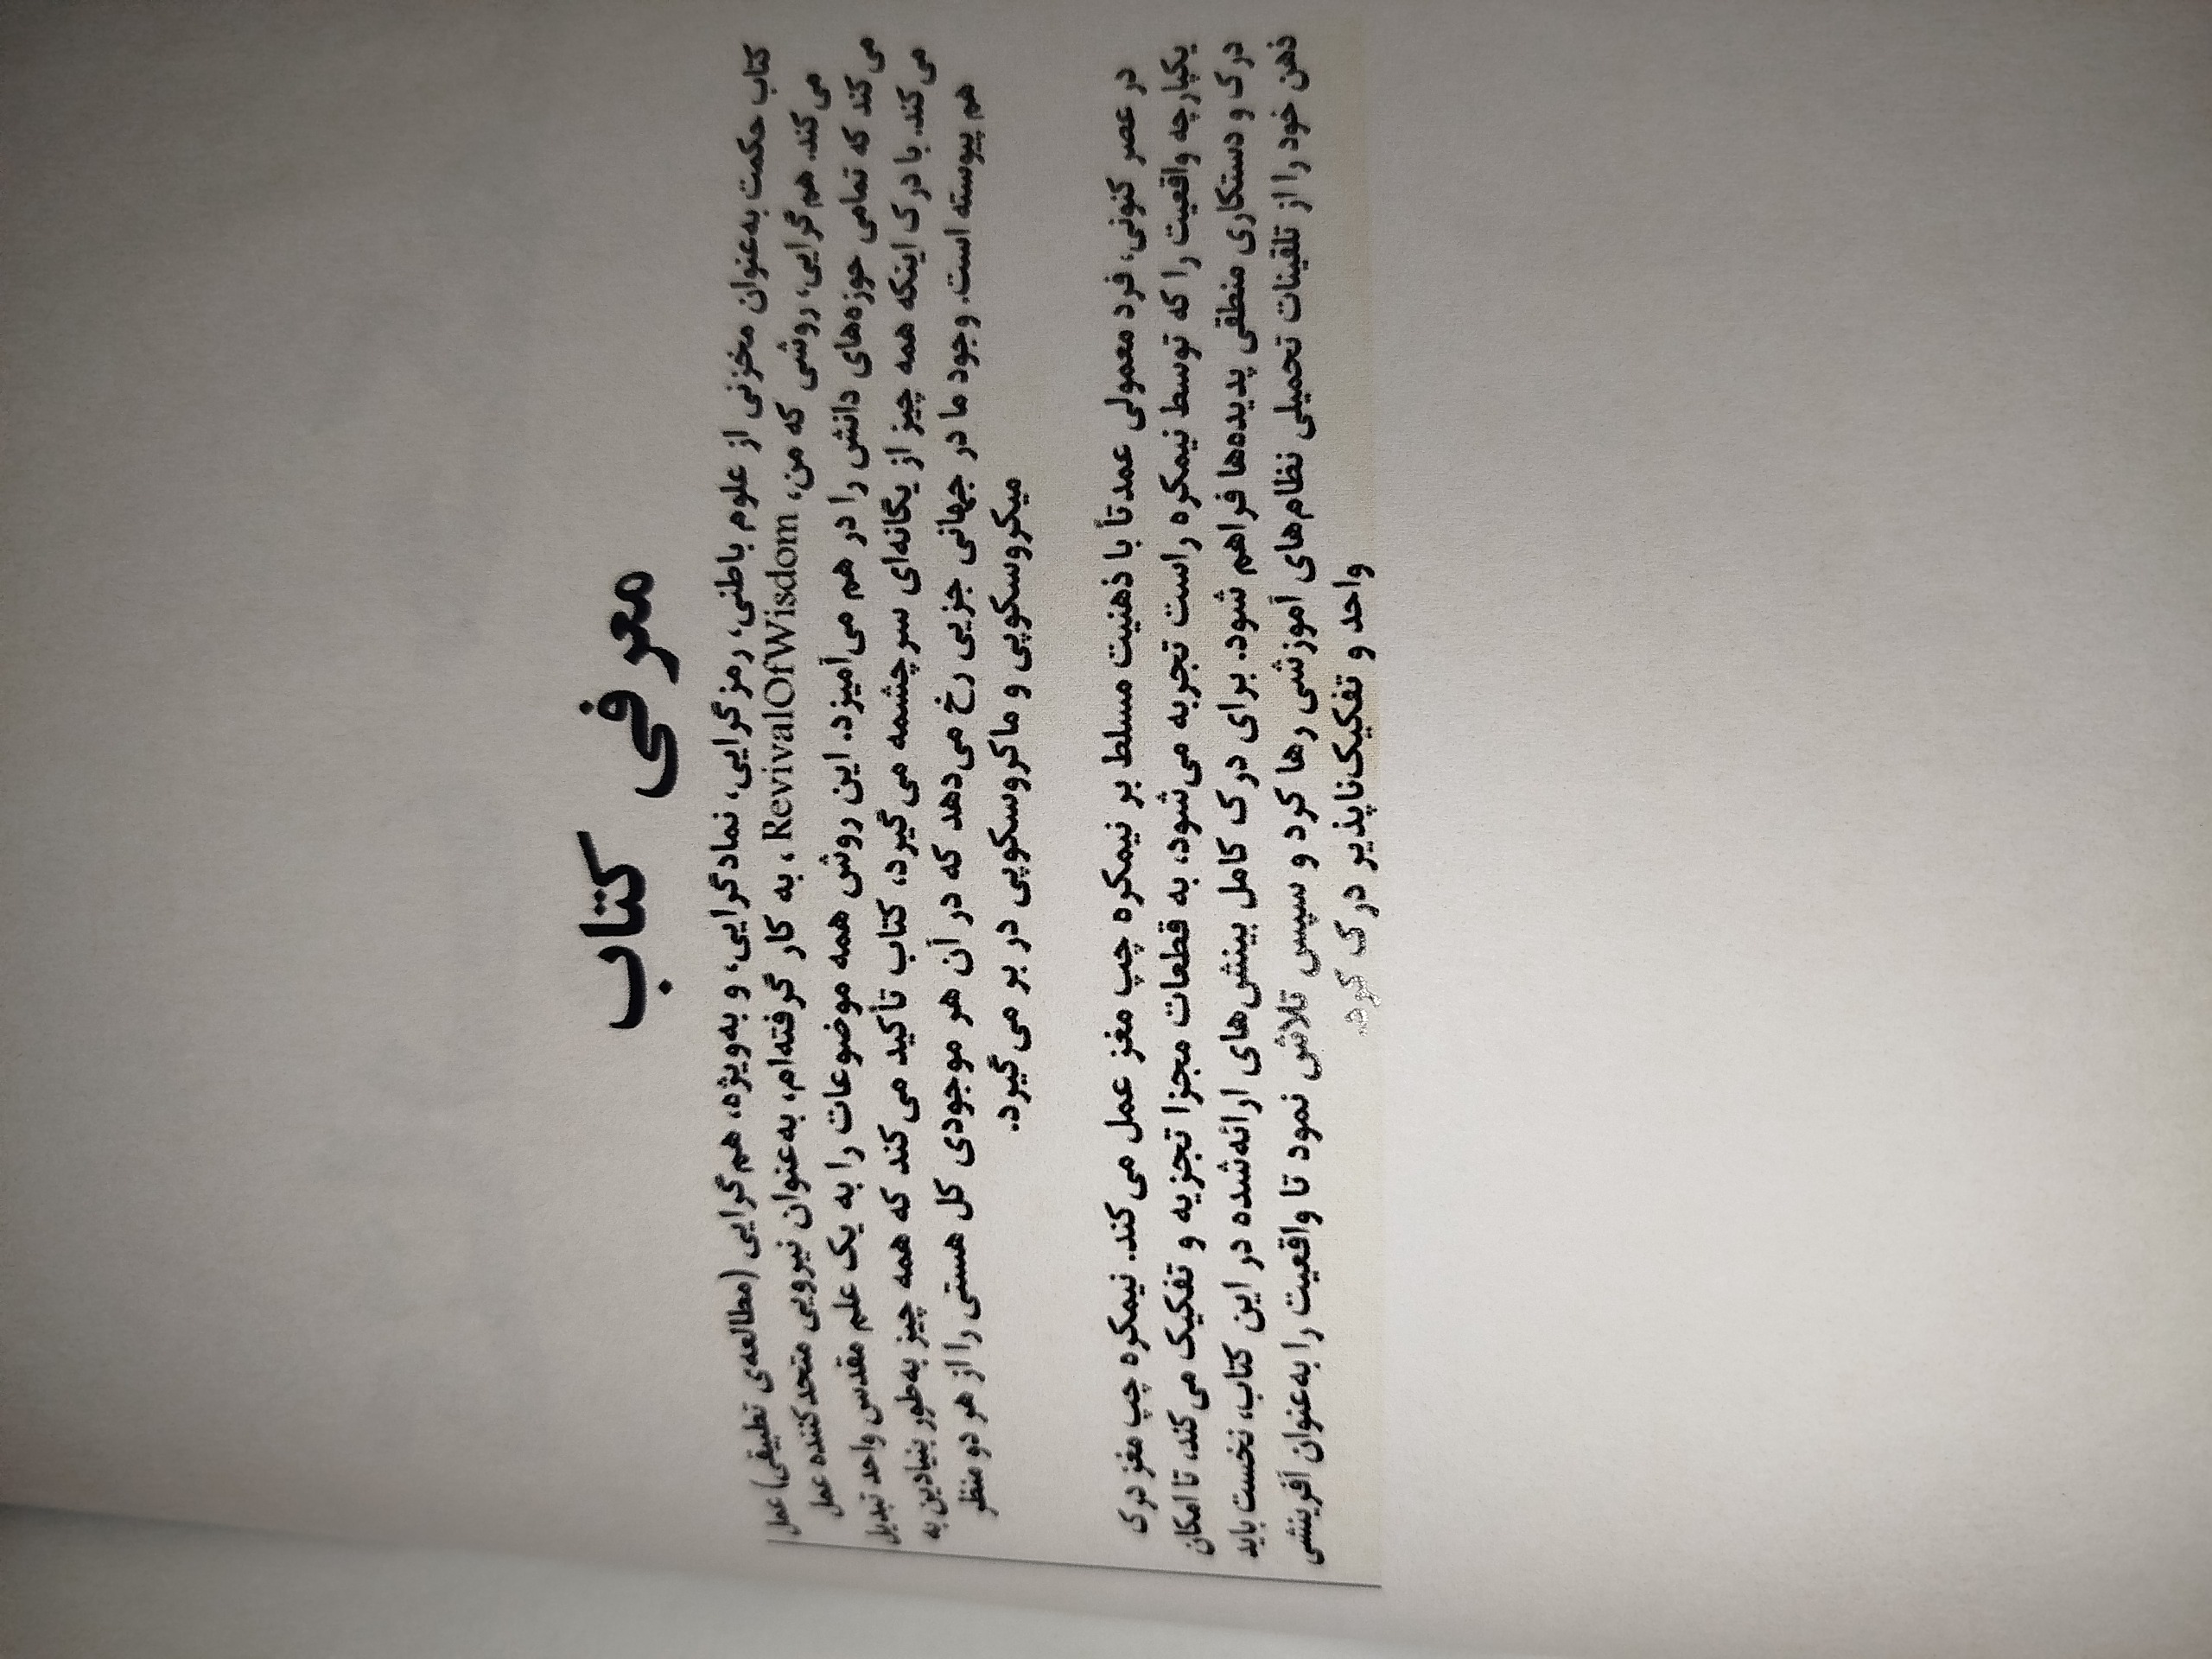 معرفی کتاب
کتاب حکمت به‌عنوان مخزنی از علوم باطنی، رمزگرایی، نمادگرایی، و به‌ویژه، هم‌گرایی (مطالعه‌ی تطبیقی) عمل
می‌کند. هم‌گرایی، روشی که من، RevivalOfWisdom، به کار گرفته‌ام، به‌عنوان نیرویی متحدکننده عمل
می‌کند که تمامی حوزه‌های دانش را در هم می‌آمیزد. این روش همه موضوعات را به یک علم مقدس واحد تبدیل
می‌کند. با درک اینکه همه چیز از یگانه‌ای سرچشمه می‌گیرد، کتاب تأکید می‌کند که همه چیز به‌طور بنیادین به
هم پیوسته است. وجود ما در جهانی جزیی رخ می‌دهد که در آن هر موجودی کل هستی را از هر دو منظر
میکروسکوپی و ماکروسکوپی در بر می‌گیرد.
در عصر کنونی، فرد معمولی عمدتاً با ذهنیت مسلط بر نیمکره چپ مغز عمل می‌کند. نیمکره چپ مغز درک
یکپارچه واقعیت را که توسط نیمکره راست تجربه می‌شود، به قطعات مجزا تجزیه و تفکیک می‌کند، تا امکان
درک و دستکاری منطقی پدیده‌ها فراهم شود. برای درک کامل بینش‌های ارائه‌شده در این کتاب، نخست باید
ذهن خود را از تلقینات تحمیلی نظام‌های آموزشی رها کرد و سپس تلاش نمود تا واقعیت را به‌عنوان آفرینشی
واحد و تفکیک‌ناپذیر درک کرد.